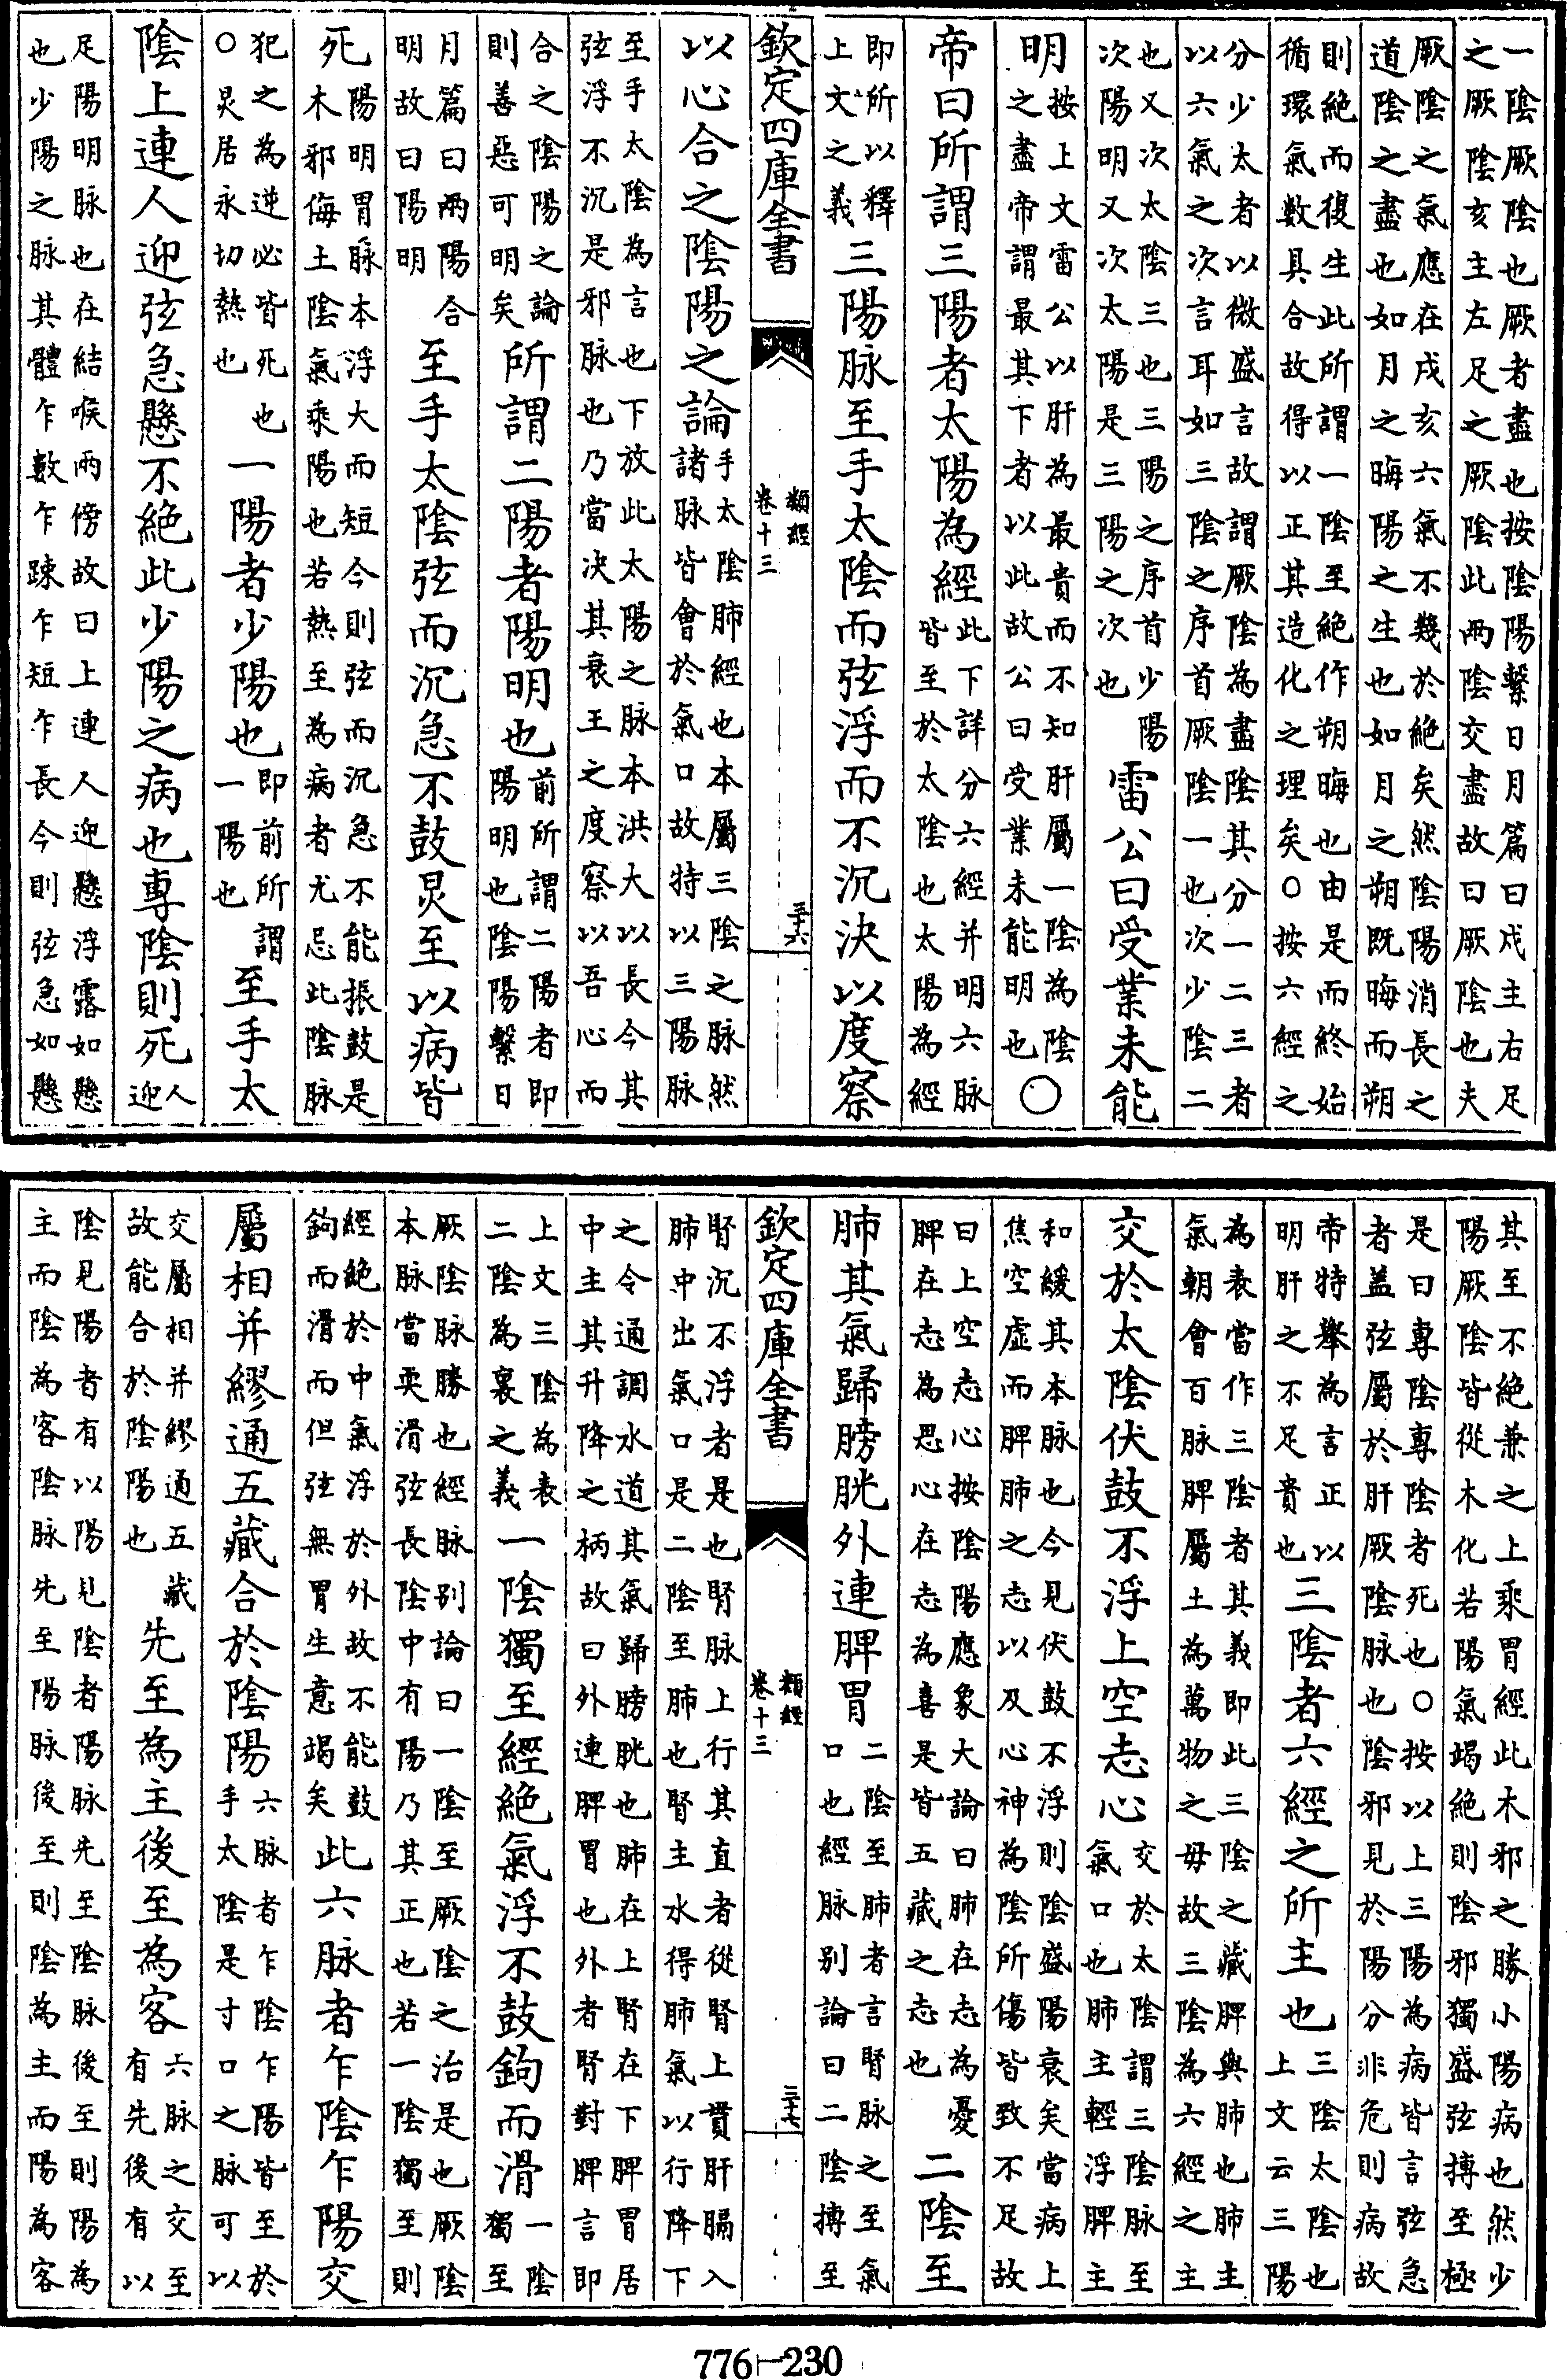 一陰厥陰也厥者盡也按陰陽繫日月篇曰戌主右足
之厥陰亥主左足之厥陰此兩陰交盡故曰厥陰也夫
厥陰之氣應在戌亥六氣不幾於絕矣然陰陽消長之
道陰之盡也如月之晦陽之生也如月之朔既晦而朔
則絕而復生此所謂一陰至絕作朔晦也由是而終始
循環氣數具合故得以正其造化之理矣○按六經之
分少太者以微盛言故謂厥陰為盡陰其分一二三者
以六氣之次言耳如三陰之序首厥陰一也次少陰二
也又次太陰三也三陽之序首少陽
次陽明又次太陽是三陽之次也
雷公曰受業未能
明
按上文雷公以肝為最貴而不知肝屬一陰為陰
之盡帝謂最其下者以此故公曰受業未能明也○
帝曰所謂三陽者太陽為經
此下詳分六經并明六脉
皆至於太陰也太陽為經
即所以釋
上文之義
三陽脉至手太陰而弦浮而不沉決以度察
欽定四庫全書
類經
卷十三
三十六
以心合之陰陽之論
手太陰肺經也本屬三陰之脉然
諸脉皆會於氣口故特以三陽脉
至手太陰為言也下放此太陽之脉本洪大以長今其
弦浮不沉是邪脉也乃當決其衰王之度察以吾心而
合之陰陽之論
則善惡可明矣
所謂二陽者陽明也
前所謂二陽者即
陽明也陰陽繫日
月篇曰兩陽合
明故曰陽明
至手太陰弦而沉急不鼓炅至以病皆
死
陽明胃脉本浮大而短今則弦而沉急不能振鼓是
木邪侮土陰氣乘陽也若熱至為病者尤忌此陰脉
犯之為逆必皆死也
○炅居永切熱也
一陽者少陽也
即前所謂
一陽也
至手太
陰上連人迎弦急懸不絕此少陽之病也專陰則死
人
迎
足陽明脉也在結喉兩傍故曰上連人迎懸浮露如懸
也少陽之脉其體乍數乍踈乍短乍長今則弦急如懸
其至不絕兼之上乘胃經此木邪之勝小陽病也然少
陽厥陰皆從木化若陽氣竭絕則陰邪獨盛弦搏至極
是曰專陰專陰者死也○按以上三陽為病皆言弦急
者盖弦屬於肝厥陰脉也陰邪見於陽分非危則病故
帝特舉為言正以
明肝之不足貴也
三陰者六經之所主也
三陰太陰也
上文云三陽
為表當作三陰者其義即此三陰之藏脾與肺也肺主
氣朝會百脉脾屬土為萬物之母故三陰為六經之主
交於太陰伏鼓不浮上空志心
交於太陰謂三陰脉至
氣口也肺主輕浮脾主
和緩其本脉也今見伏鼓不浮則陰盛陽衰矣當病上
焦空虛而脾肺之志以及心神為陰所傷皆致不足故
曰上空志心按陰陽應象大論曰肺在志為憂
脾在志為思心在志為喜是皆五藏之志也
二陰至
肺其氣歸膀胱外連脾胃
二陰至肺者言腎脉之至氣
口也經脉別論曰二陰搏至
欽定四庫全書
類經
卷十三
三十七
腎沉不浮者是也腎脉上行其直者從腎上貫肝膈入
肺中出氣口是二陰至肺也腎主水得肺氣以行降下
之令通調水道其氣歸膀胱也肺在上腎在下脾胃居
中主其升降之柄故曰外連脾胃也外者腎對脾言即
上文三陰為表
二陰為裏之義
一陰獨至經絕氣浮不鼓鉤而滑
一陰
獨至
厥陰脉勝也經脉別論曰一陰至厥陰之治是也厥陰
本脉當耎滑弦長陰中有陽乃其正也若一陰獨至則
經絕於中氣浮於外故不能鼓
鉤而滑而但弦無胃生意竭矣
此六脉者乍陰乍陽交
屬相并繆通五藏合於陰陽
六脉者乍陰乍陽皆至於
手太陰是寸口之脉可以
交屬相并繆通五藏
故能合於陰陽也
先至為主後至為客
六脉之交至
有先後有以
陰見陽者有以陽見陰者陽脉先至陰脉後至則陽為
主而陰為客陰脉先至陽脉後至則陰為主而陽為客
776-230